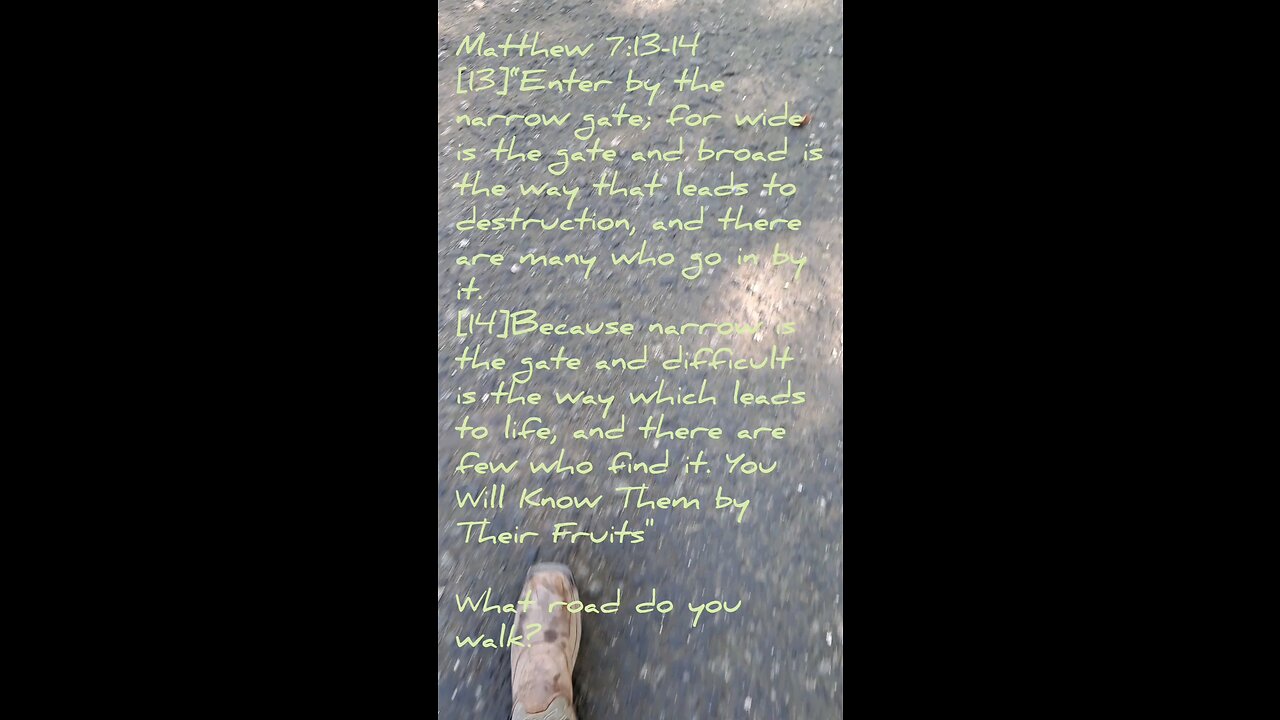 Matthew 7:13-14
[13]“Enter by the
narrow gate; for wide
is the gate and broad is
the way that leads to
destruction, and there
are many who go in by
it.
[14]Because narrow is
the gate and difficult
is the way which leads
to life, and there are
few who find it. You
Will Know Them by
Their Fruits"
What road do you
walk?